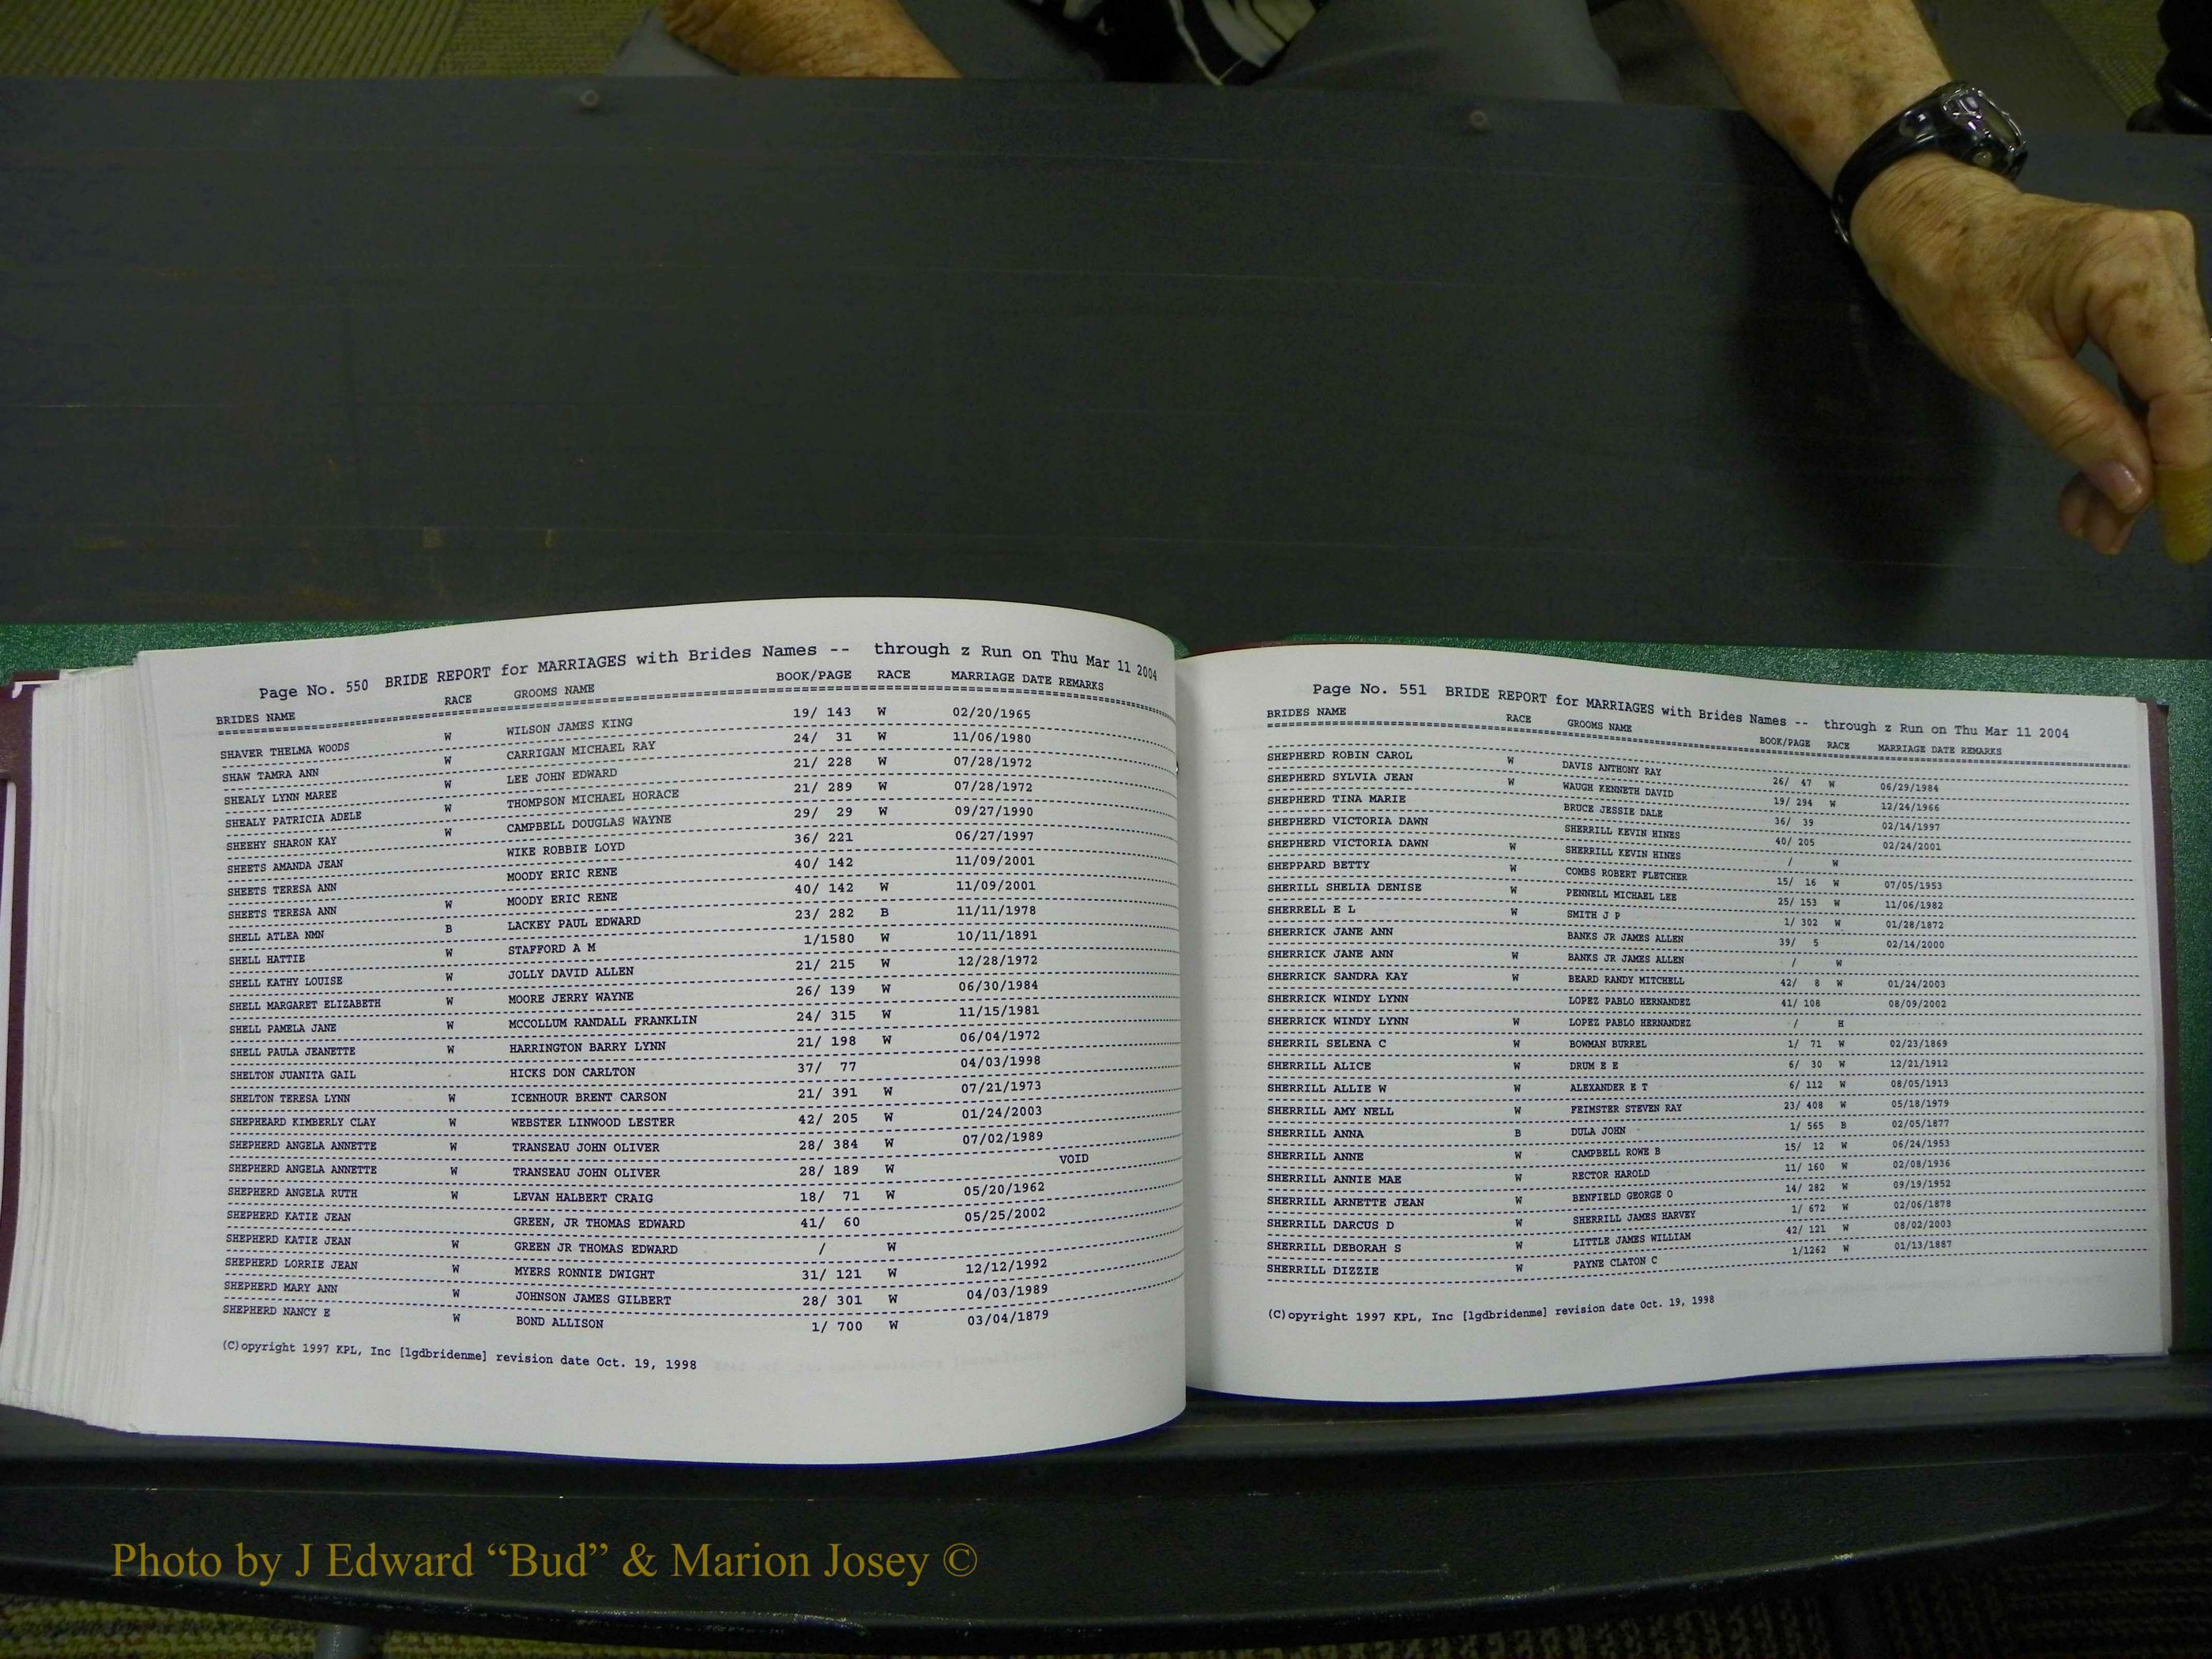 Page No. 550 BRIDE REPORT for MARRIAGES with Brides Names -- through z Run on Thu Mar 11 2004
BRIDES NAME RACE GROOMS NAME BOOK/PAGE RACE MARRIAGE DATE REMARKS
SHAVER THELMA WOODS W WILSON JAMES KING 19/ 143 W 02/20/1965
SHAW TAMRA ANN W CARRIGAN MICHAEL RAY 24/ 31 W 11/06/1980
SHEALY LYNN MAREE W LEE JOHN EDWARD 21/ 228 W 07/28/1972
SHEALY PATRICIA ADELE W THOMPSON MICHAEL HORACE 21/ 289 W 07/28/1972
SHEEHY SHARON KAY W CAMPBELL DOUGLAS WAYNE 29/ 29 W 09/27/1990
SHEETS AMANDA JEAN WIKE ROBBIE LOYD 36/ 221 06/27/1997
SHEETS TERESA ANN MOODY ERIC RENE 40/ 142 11/09/2001
SHEETS TERESA ANN W MOODY ERIC RENE 40/ 142 W 11/09/2001
SHELL ATLEA NMN B LACKEY PAUL EDWARD 23/ 282 B 11/11/1978
SHELL HATTIE W STAFFORD A M 1/1580 W 10/11/1891
SHELL KATHY LOUISE W JOLLY DAVID ALLEN 21/ 215 W 12/28/1972
SHELL MARGARET ELIZABETH W MOORE JERRY WAYNE 26/ 139 W 06/30/1984
SHELL PAMELA JANE W MCCOLLUM RANDALL FRANKLIN 24/ 315 W 11/15/1981
SHELL PAULA JEANETTE W HARRINGTON BARRY LYNN 21/ 198 W 06/04/1972
SHELTON JUANITA GAIL HICKS DON CARLTON 37/ 77 04/03/1998
SHELTON TERESA LYNN W ICENHOUR BRENT CARSON 21/ 391 W 07/21/1973
SHEPHEARD KIMBERLY CLAY W WEBSTER LINWOOD LESTER 42/ 205 W 01/24/2003
SHEPHERD ANGELA ANNETTE W TRANSEAU JOHN OLIVER 28/ 384 W 07/02/1989
SHEPHERD ANGELA ANNETTE W TRANSEAU JOHN OLIVER 28/ 189 W VOID
SHEPHERD ANGELA RUTH W LEVAN HALBERT CRAIG 18/ 71 W 05/20/1962
SHEPHERD KATIE JEAN GREEN, JR THOMAS EDWARD 41/ 60 05/25/2002
SHEPHERD KATIE JEAN W GREEN JR THOMAS EDWARD / W
SHEPHERD LORRIE JEAN W MYERS RONNIE DWIGHT 31/ 121 W 12/12/1992
SHEPHERD MARY ANN W JOHNSON JAMES GILBERT 28/ 301 W 04/03/1989
SHEPHERD NANCY E W BOND ALLISON 1/ 700 W 03/04/1879
(C)opyright 1997 KPL, Inc [lgdbridenme] revision date Oct. 19, 1998
Page No. 551 BRIDE REPORT for MARRIAGES with Brides Names -- through z Run on Thu Mar 11 2004
BRIDES NAME RACE GROOMS NAME BOOK/PAGE RACE MARRIAGE DATE REMARKS
SHEPHERD ROBIN CAROL W DAVIS ANTHONY RAY 26/ 47 W 06/29/1984
SHEPHERD SYLVIA JEAN W WAUGH KENNETH DAVID 19/ 294 W 12/24/1966
SHEPHERD TINA MARIE BRUCE JESSIE DALE 36/ 39 02/14/1997
SHEPHERD VICTORIA DAWN SHERRILL KEVIN HINES 40/ 205 02/24/2001
SHEPHERD VICTORIA DAWN W SHERRILL KEVIN HINES / W
SHEPPARD BETTY W COMBS ROBERT FLETCHER 15/ 16 W 07/05/1953
SHERILL SHELIA DENISE W PENNELL MICHAEL LEE 25/ 153 W 11/06/1982
SHERRELL E L W SMITH J P 1/ 302 W 01/28/1872
SHERRICK JANE ANN BANKS JR JAMES ALLEN 39/ 5 02/14/2000
SHERRICK JANE ANN W BANKS JR JAMES ALLEN / W
SHERRICK SANDRA KAY W BEARD RANDY MITCHELL 42/ 8 W 01/24/2003
SHERRICK WINDY LYNN LOPEZ PABLO HERNANDEZ 41/ 108 08/09/2002
SHERRICK WINDY LYNN W LOPEZ PABLO HERNANDEZ / H
SHERRIL SELENA C W BOWMAN BURREL 1/ 71 W 02/23/1869
SHERRILL ALICE W DRUM E E 6/ 30 W 12/21/1912
SHERRILL ALLIE W W ALEXANDER E T 6/ 112 W 08/05/1913
SHERRILL AMY NELL W FEIMSTER STEVEN RAY 23/ 408 W 05/18/1979
SHERRILL ANNA B DULA JOHN 1/ 565 B 02/05/1877
SHERRILL ANNE W CAMPBELL ROWE B 15/ 12 W 06/24/1953
SHERRILL ANNIE MAE W RECTOR HAROLD 11/ 160 W 02/08/1936
SHERRILL ARNETTE JEAN W BENFIELD GEORGE O 14/ 282 W 09/19/1952
SHERRILL DARCUS D W SHERRILL JAMES HARVEY 1/ 672 W 02/06/1878
SHERRILL DEBORAH S W LITTLE JAMES WILLIAM 42/ 121 W 08/02/2003
SHERRILL DIZZIE W PAYNE CLATON C 1/1262 W 01/13/1887
(C)opyright 1997 KPL, Inc [lgdbridenme] revision date Oct. 19, 1998
Photo by J Edward “Bud” & Marion Josey ©